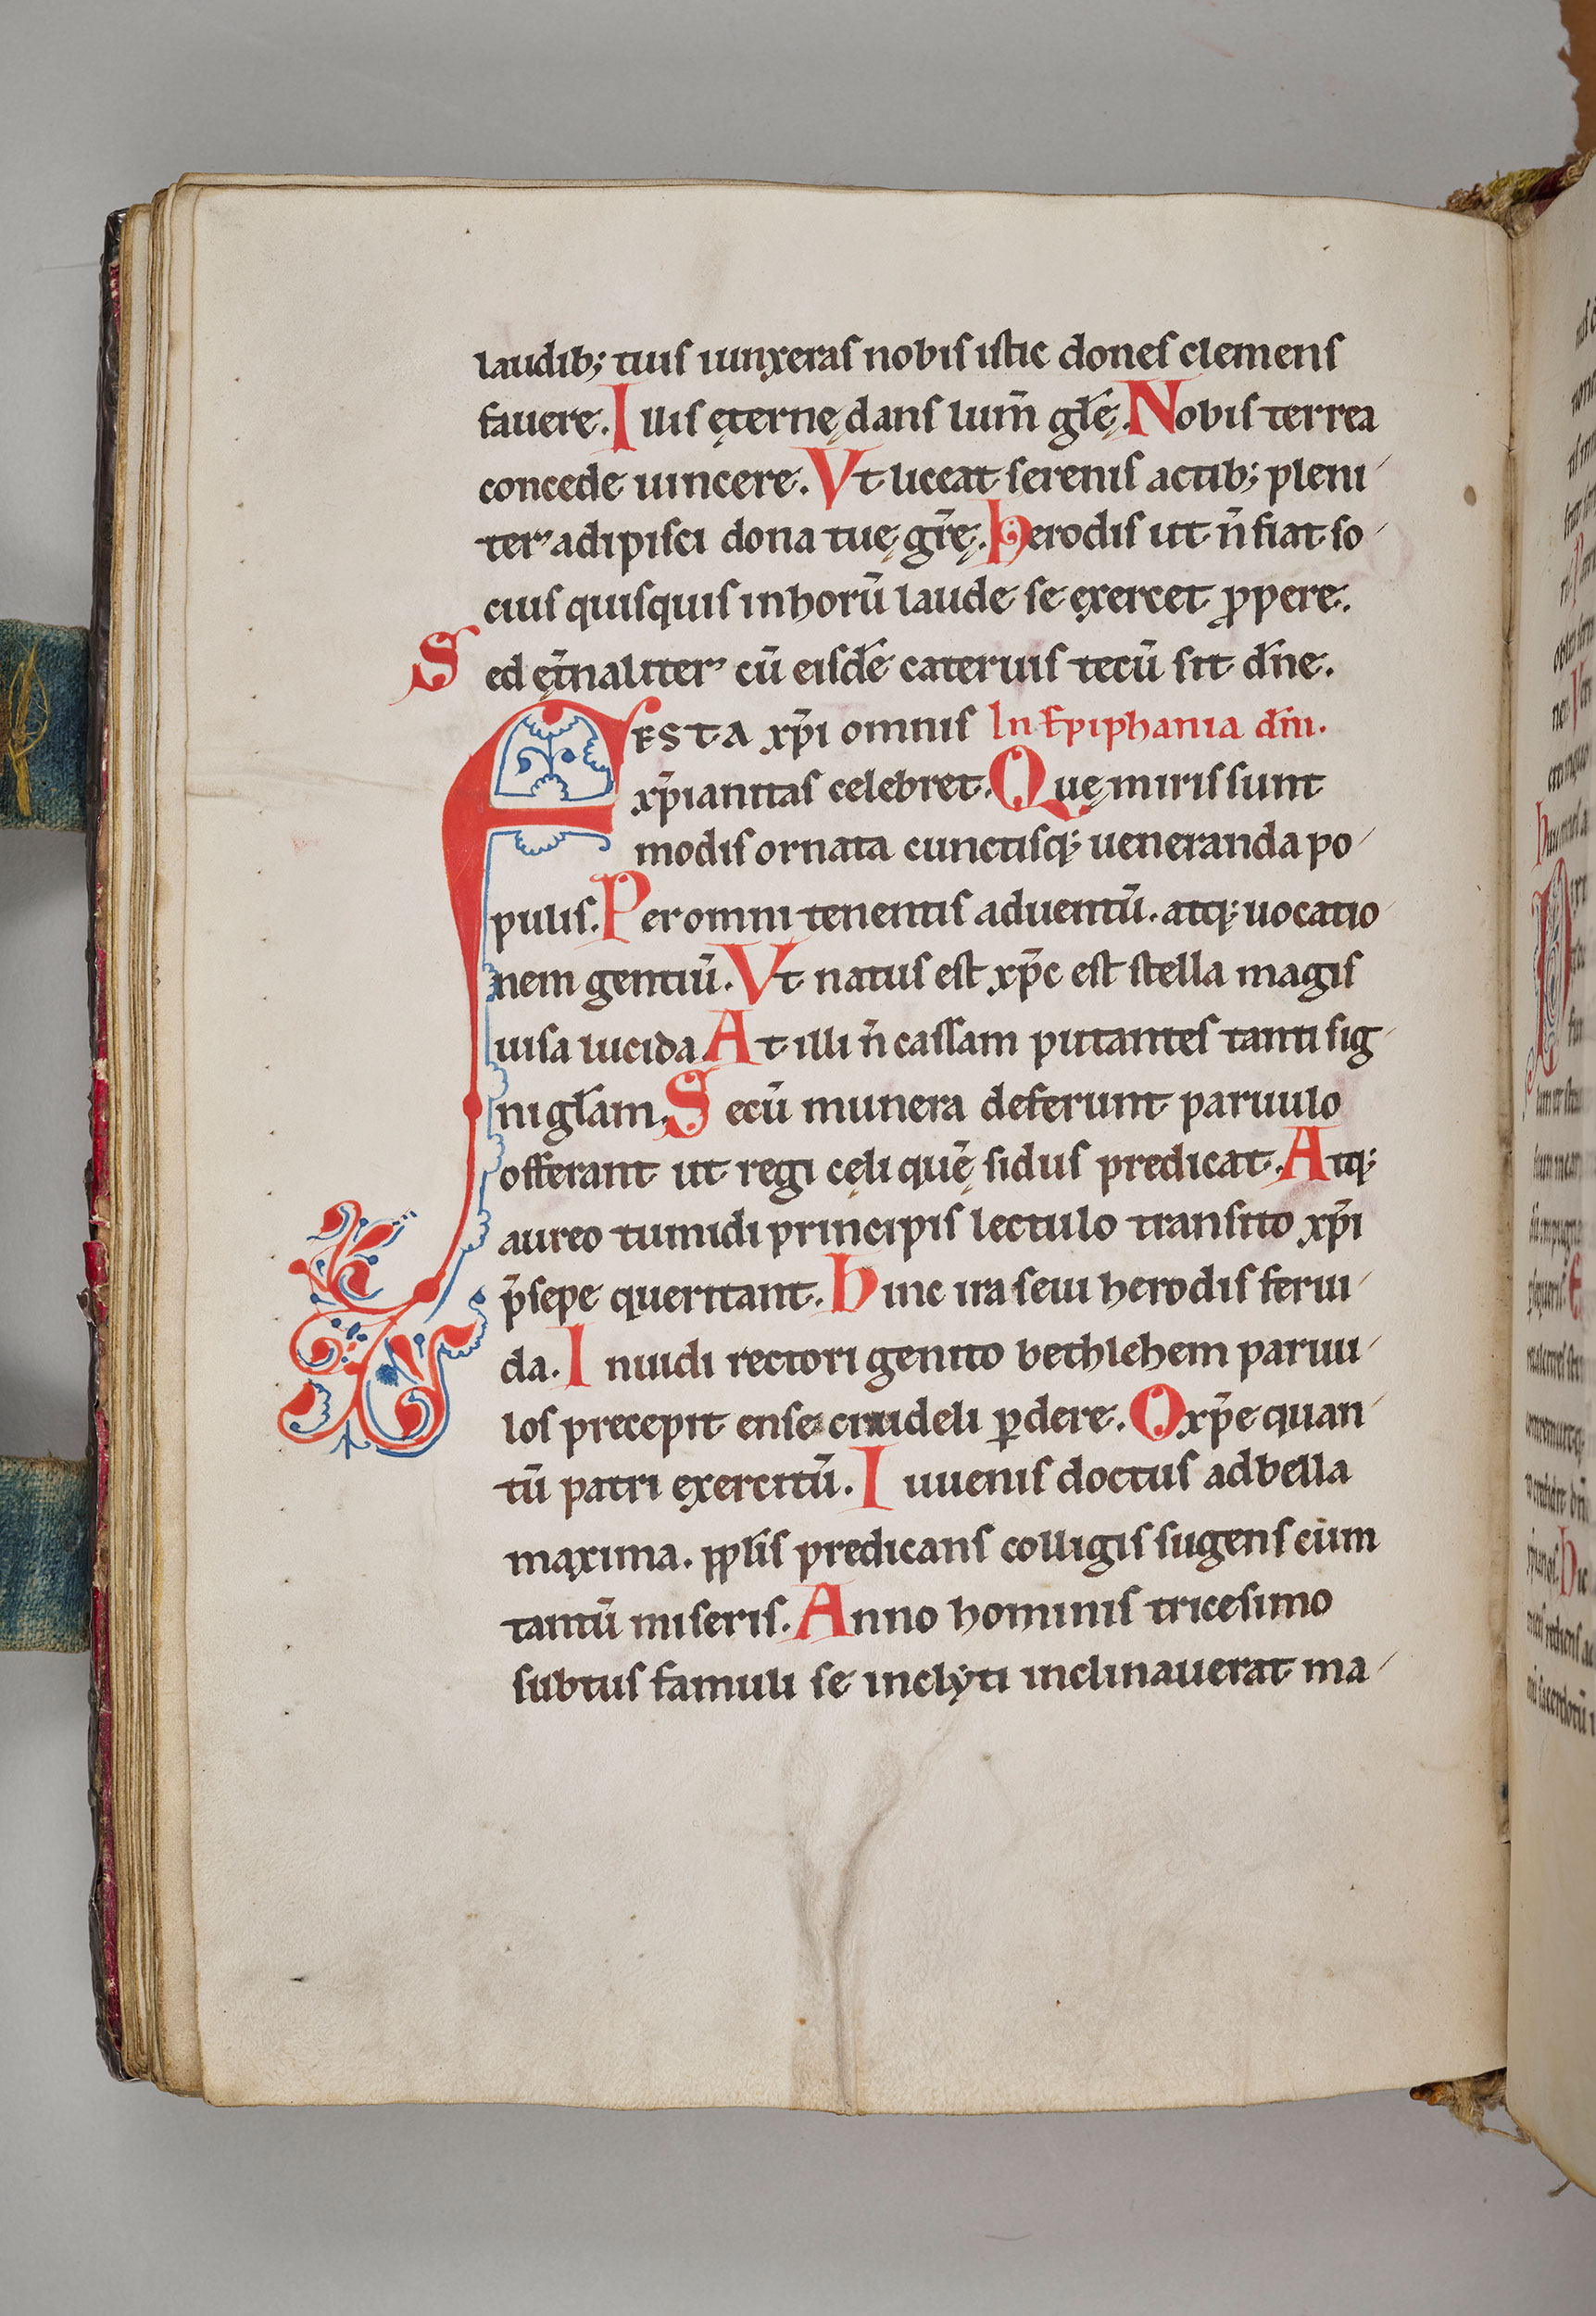 laudib; tuis iunxeras nobis istic dones clemens
fauere. Illis ęternę dans lum̄ gl̄ę. Nobis terrea
concede uincere. Vt liceat serenis actib; pleni
ter adipisci dona tuę gr̄ę. herodis ut n̄ fiat so
cius quisquis in horū laude se exercet ꝓpere.
Sed et̄naliter cū eisdē cateruis tecū sit dn̄e.
FESTA xp̄i omnis In Epiphania dn̄i.
xp̄ianitas celebret. Quę miris sunt
modis ornata cunctisq; ueneranda po
pulis. Per omnitenentis aduentū. atq; uocatio
nem gentiū. Vt natus est xp̄c est stella magis
uisa lucida. At illi n̄ cassam putantes tanti sig
ni gl̄am. Secū munera deferunt paruulo
offerant ut regi cęli quē sidus predicat. Atq;
aureo tumidi principis lectulo transito xp̄i
p̄sepe queritant. Hinc ira seui herodis ferui
da. Inuidi rectori genito bethlehem paruu
los precepit ense crudeli ꝑdere. O xp̄e quan
tū patri exercitū. Iuuenis doctus ad bella
maxima. ppl̄is predicans colligis sugens cum
tantū miseris. Anno hominis tricesimo
subtus famuli se inclyti inclinauerat ma